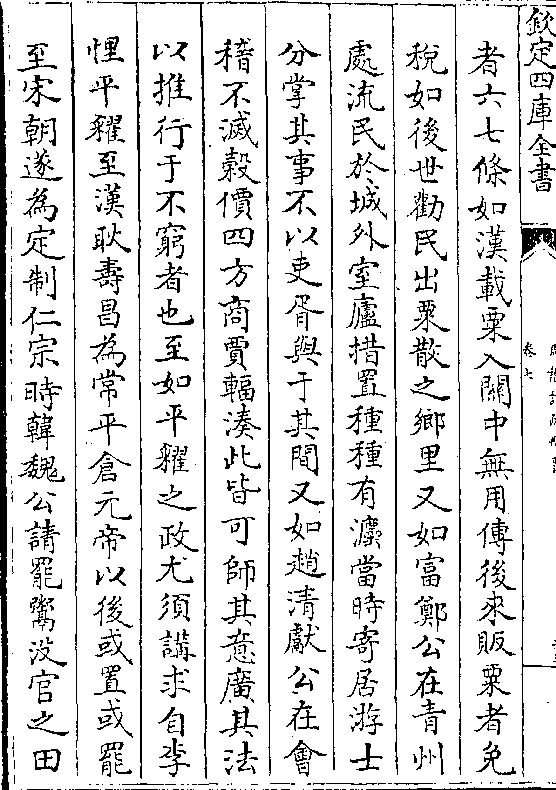 欽定四庫全書
卷七
者六七條如漢載粟入關中無用傳後來販粟者免
稅如後世勸民出粟散之鄉里又如富鄭公在青州
處流民於城外室廬措置種種有灋當時寄居游士
分掌其事不以吏胥與于其間又如趙清獻公在會
稽不滅穀價四方商賈輻湊此皆可師其意廣其法
以推行于不窮者也至如平糴之政尤須講求自李
悝平糴至漢耿壽昌為常平倉元帝以後或置或罷
至宋朝遂為定制仁宗時韓魏公請罷鬻没官之田